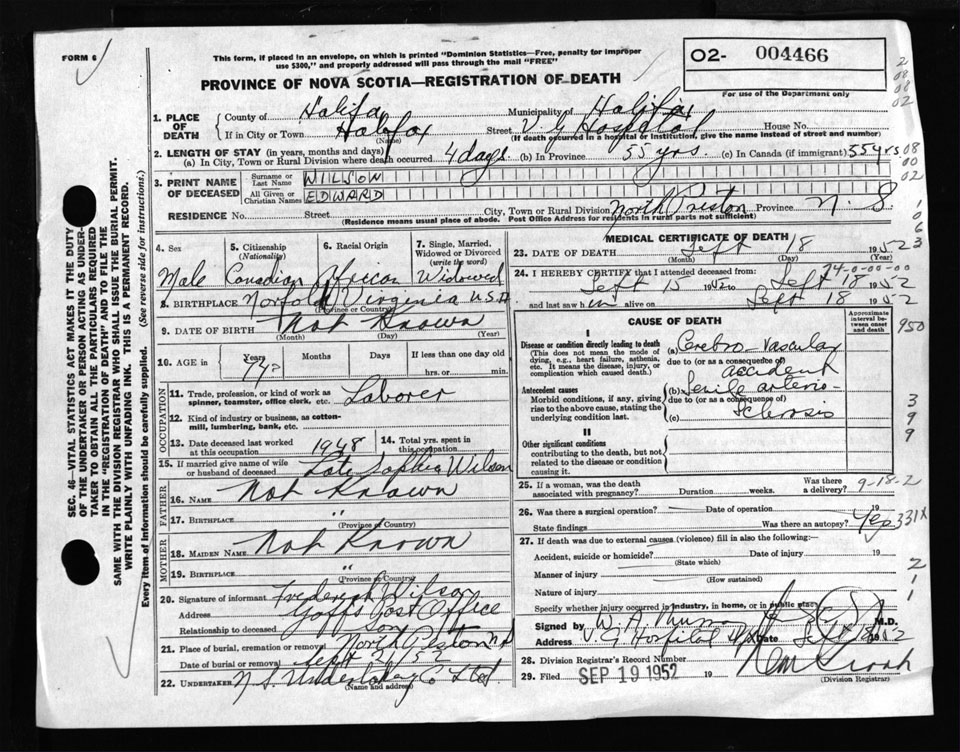 FORM 6
This form, if placed in an envelope, on which is printed "Dominion Statistics—Free, penalty for improper
use $300," and properly addressed will pass through the mail "FREE"
O2- 004466
For use of the Department only
PROVINCE OF NOVA SCOTIA—REGISTRATION OF DEATH
1. PLACE OF DEATH
County of Halifax Municipality of Halifax
If in City or Town Halifax (Name) Street V G Hospital House No.
(If death occurred in a hospital or institution, give the name instead of street and number)
2. LENGTH OF STAY (in years, months and days)
(a) In City, Town or Rural Division where death occurred 4 days. (b) In Province 55 yrs. (c) In Canada (if immigrant) 55 yrs
3. PRINT NAME OF DECEASED
Surname or Last Name WILSON
All Given or Christian Names EDWARD
RESIDENCE No. Street City, Town or Rural Division North Preston Province N. S.
(Residence means usual place of abode. Post Office Address for residents in rural parts not sufficient)
4. Sex Male
5. Citizenship (Nationality) Canadian
6. Racial Origin African
7. Single, Married, Widowed or Divorced (write the word) Widowed
8. BIRTHPLACE Norfolk Virginia U.S.A
(Province or Country)
9. DATE OF BIRTH Not Known
(Month) (Day) (Year)
10. AGE in Years 74? Months Days If less than one day old
hrs. or min.
OCCUPATION
11. Trade, profession, or kind of work as
spinner, teamster, office clerk, etc. Laborer
12. Kind of industry or business, as cotton-
mill, lumbering, bank, etc.
13. Date deceased last worked
at this occupation 1948
14. Total yrs. spent in
this occupation
15. If married give name of wife
or husband of deceased Late Sophia Wilson
FATHER
16. NAME Not Known
17. BIRTHPLACE "
(Province or Country)
MOTHER
18. MAIDEN NAME Not Known
19. BIRTHPLACE "
(Province or Country)
20. Signature of informant Frederick Wilson
Address Post Office
Relationship to deceased son
21. Place of burial, cremation or removal North Preston N S
Date of burial or removal Sept 52
22. UNDERTAKER N S. Undertaking Co Ltd
(Name and address)
MEDICAL CERTIFICATE OF DEATH
23. DATE OF DEATH Sept 18 1952
(Month) (Day) (Year)
24. I HEREBY CERTIFY that I attended deceased from:
Sept 15 1952 to Sept 18 1952
and last saw h im alive on Sept 18 1952
24-0-00-00
CAUSE OF DEATH
Approximate interval between onset and death
I
Disease or condition directly leading to death
(This does not mean the mode of
dying, e.g., heart failure, asthenia,
etc. It means the disease, injury, or
complication which caused death.)
(a) Cerebro-Vascular
due to (or as a consequence of)
accident
Antecedent causes
Morbid conditions, if any, giving
rise to the above cause, stating the
underlying condition last.
(b) Senile arterio-
due to (or as a consequence of)
(c) sclerosis
II
Other significant conditions
contributing to the death, but not
related to the disease or condition
causing it.
25. If a woman, was the death
associated with pregnancy? Duration weeks. Was there
a delivery? 9-18-2
26. Was there a surgical operation? Date of operation 19
State findings Was there an autopsy? Yes 331X
27. If death was due to external causes (violence) fill in also the following:
Accident, suicide or homicide? Date of injury 19
(State which)
Manner of injury
(How sustained)
Nature of injury
Specify whether injury occurred in industry, in home, or in public place
Signed by W. A. M.D.
Address V. G Hospital Date Sept 18 1952
28. Division Registrar's Record Number
29. Filed SEP 19 1952 19
(Division Registrar)
SEC. 46—VITAL STATISTICS ACT MAKES IT THE DUTY
OF THE UNDERTAKER OR PERSON ACTING AS UNDER-
TAKER TO OBTAIN ALL THE PARTICULARS REQUIRED
IN THE "REGISTRATION OF DEATH" AND TO FILE THE
SAME WITH THE DIVISION REGISTRAR WHO SHALL ISSUE THE BURIAL PERMIT.
WRITE PLAINLY WITH UNFADING INK. THIS IS A PERMANENT RECORD.
Every item of information should be carefully supplied. (See reverse side for instructions.)
2
08
08
02
08
00
02
1
0
6
3
950
3
9
9
2
1
1